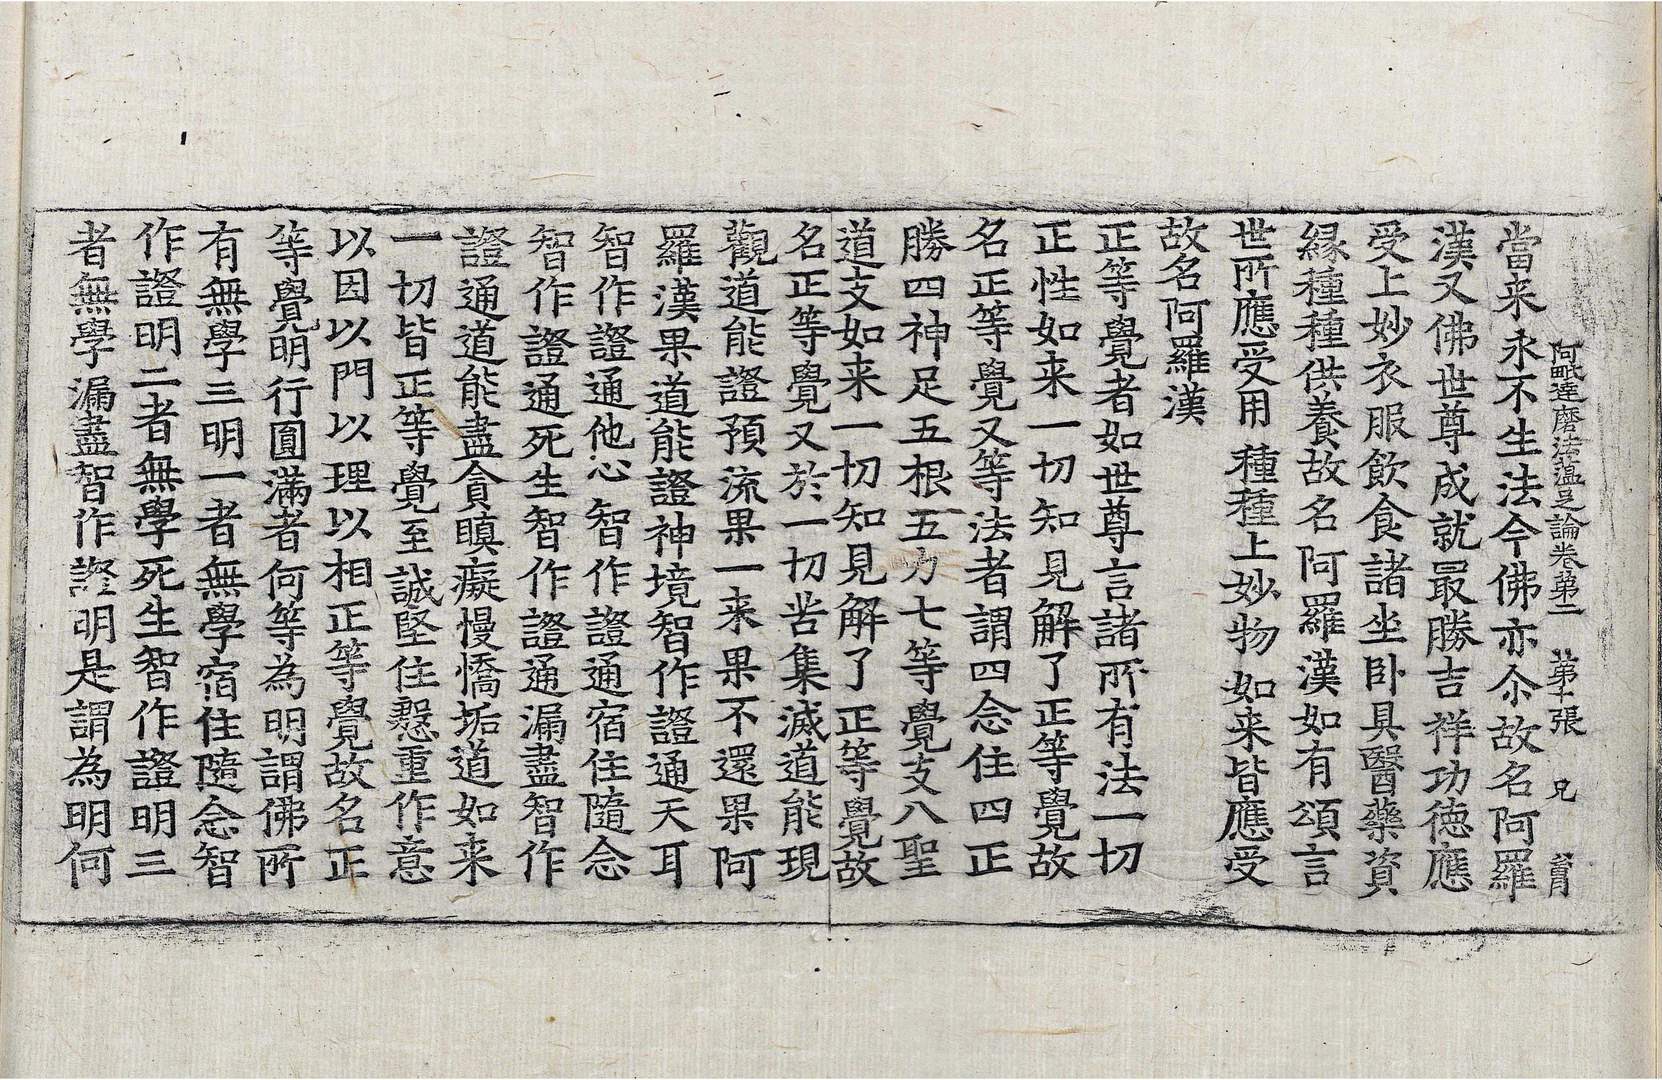 阿毗達磨法蕰足論卷第二 第十張 兄
當来永不生法今佛亦尒故名阿羅
漢又佛世尊成就最勝吉祥功徳應
受上妙衣服飲食諸坐卧具醫藥資
縁種種供養故名阿羅漢如有頌言
世所應受用 種種上妙物 如来皆應受
故名阿羅漢
正等覺者如世尊言諸所有法一切
正性如来一切知見解了正等覺故
名正等覺又等法者謂四念住四正
勝四神足五根五力七等覺支八聖
道支如来一切知見解了正等覺故
名正等覺又於一切苦集滅道能現
觀道能證預流果一来果不還果阿
羅漢果道能證神境智作證通天耳
智作證通他心智作證通宿住隨念
智作證通死生智作證通漏盡智作
證通道能盡貪瞋癡慢憍垢道如来
一切皆正等覺至誠堅住慇重作意
以因以門以理以相正等覺故名正
等覺明行圓滿者何等為明謂佛所
有無學三明一者無學宿住隨念智
作證明二者無學死生智作證明三
者無學漏盡智作證明是謂為明何